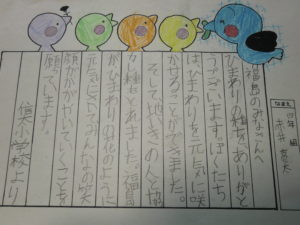 福島のみなさんへ
ひまわりの種をありがと
うございます。ぼくたち
はひまわりを元気に咲
かせることができました。
そして地いきの人と協
力し種もとれました。福島
がひまわりの花のように
元気にさいてみんなの笑
顔がかがやいていくことを
願っています。
小学校より
なまえ
四年 組
赤井